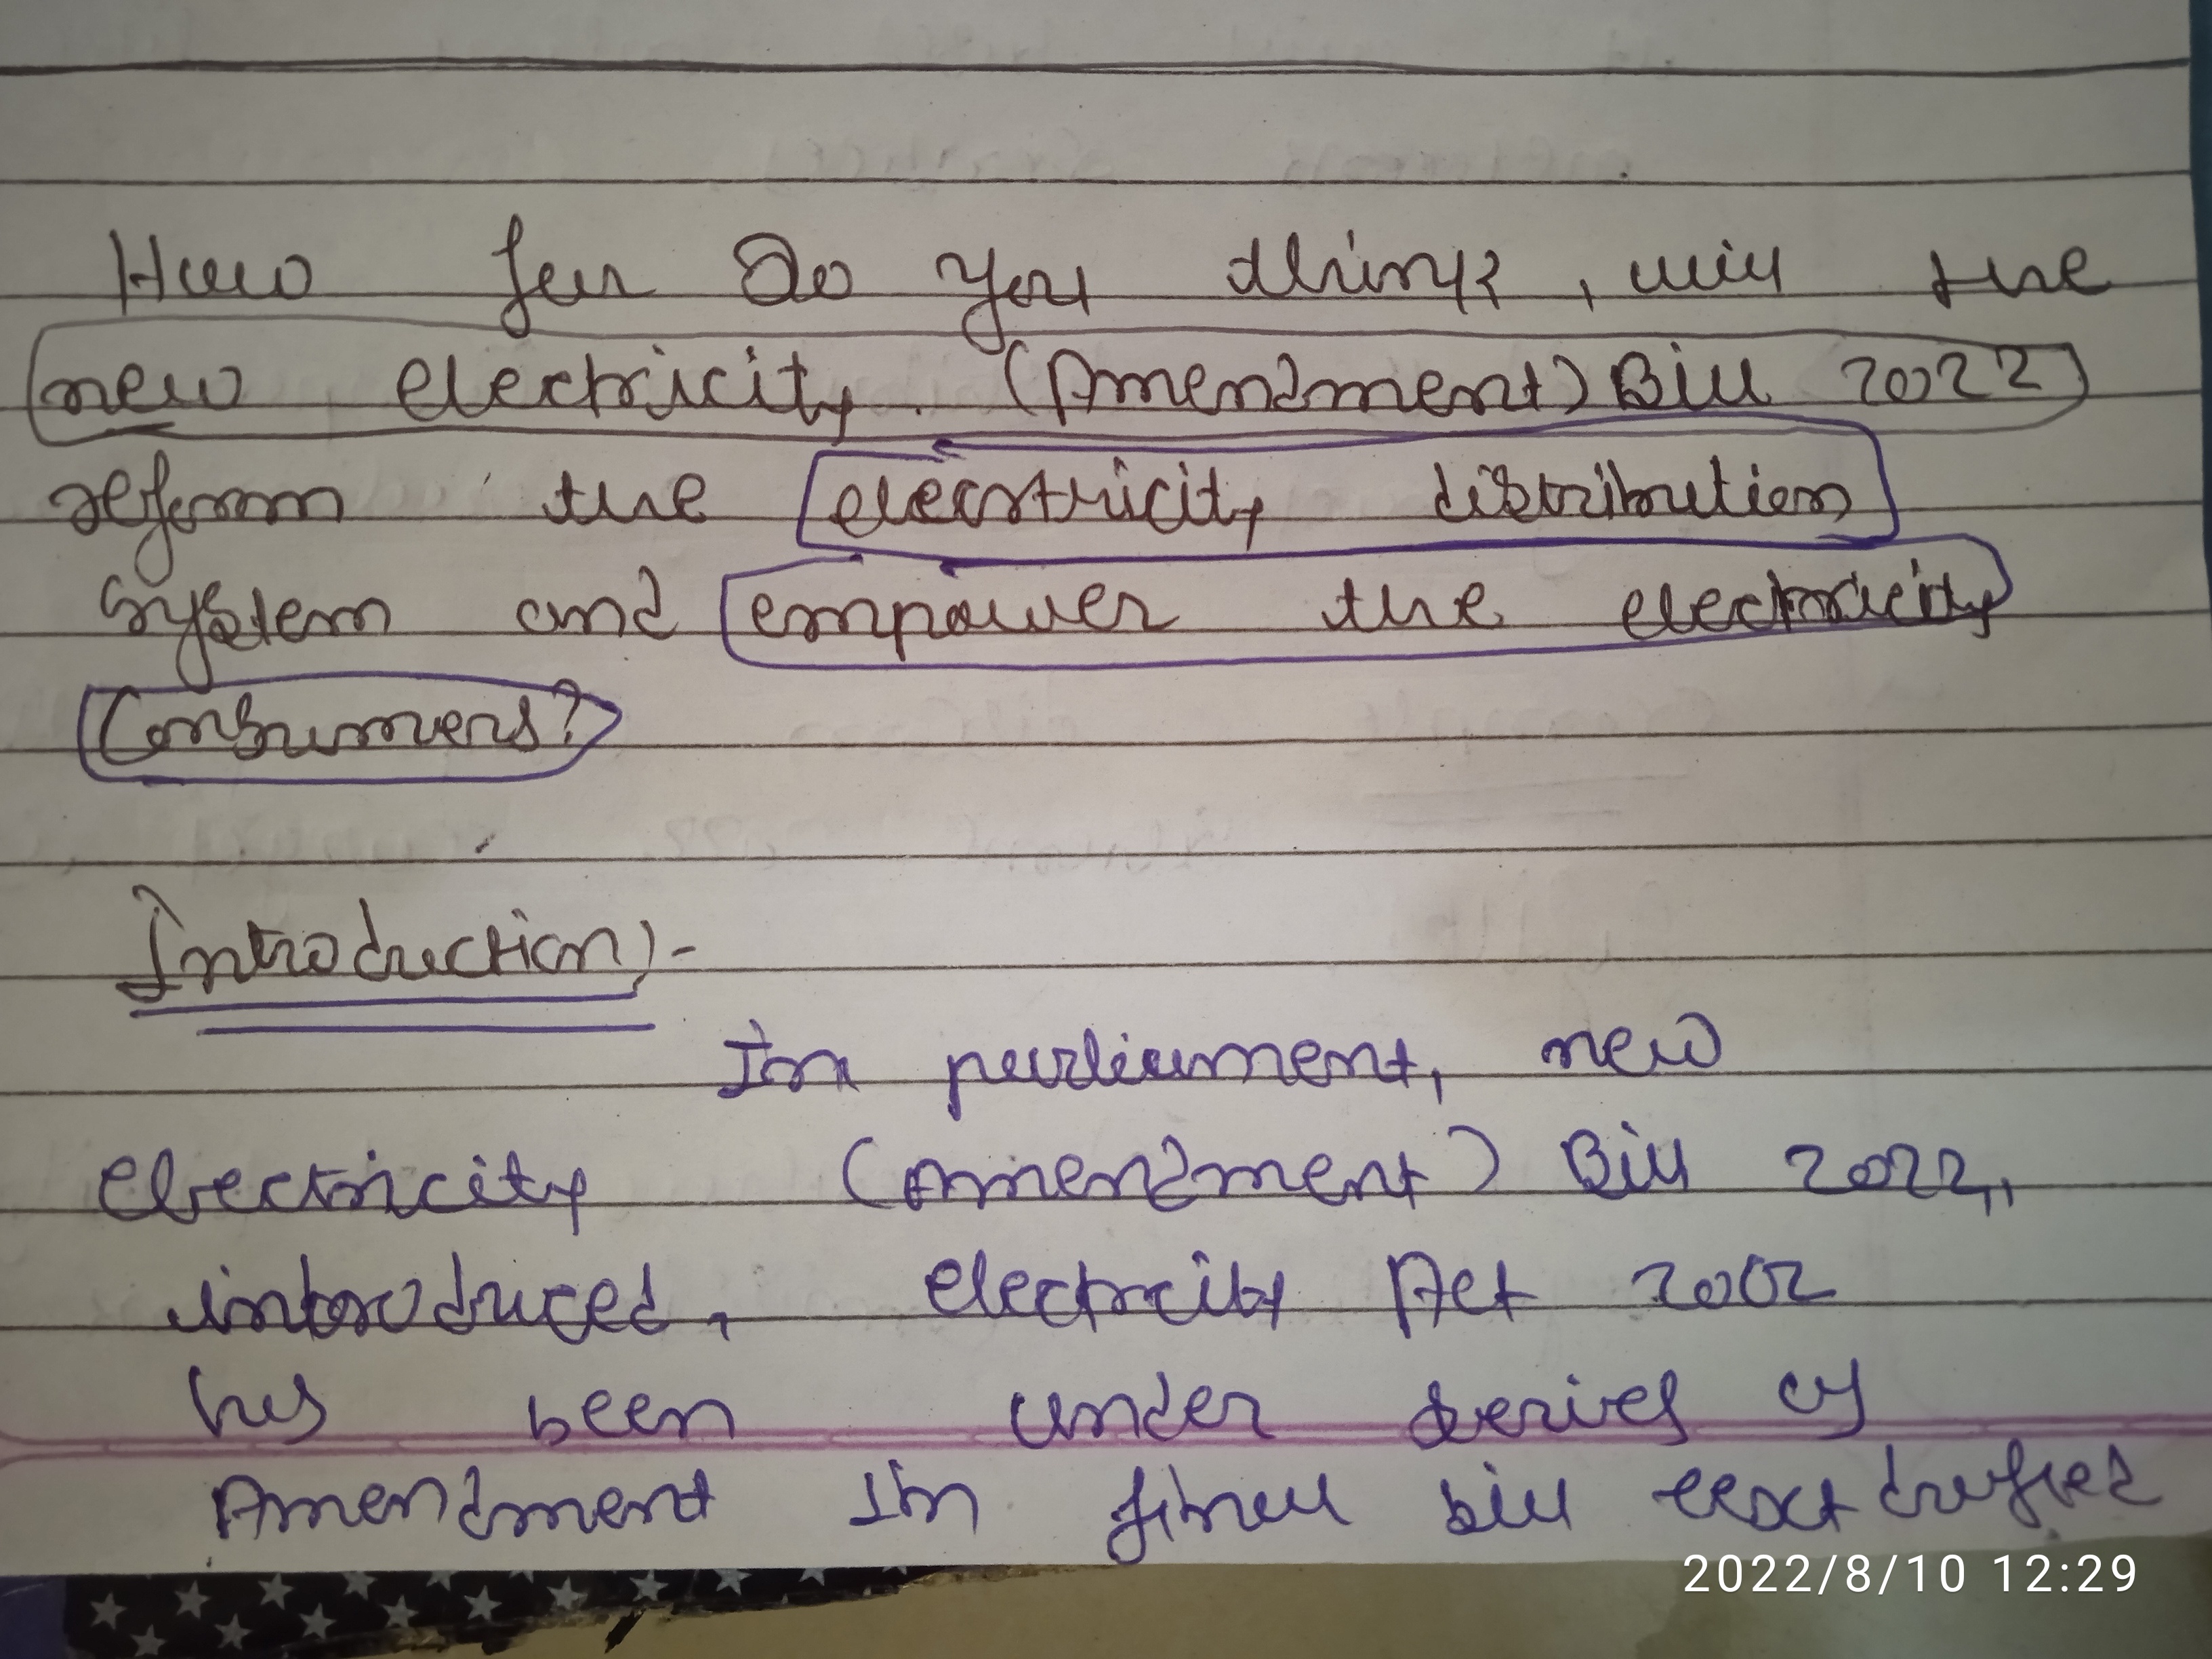 How far do you think, will the
new electricity (Amendment) Bill 2022
reform the elecstricity distribution
system and empower the electricity
Consumers?
Introduction :-
In parliament, new
electricity (Amendment) Bill 2022,
introduced, electricity Act 2002
has been under series of
Amendment In final bill drafted
2022/8/10 12:29